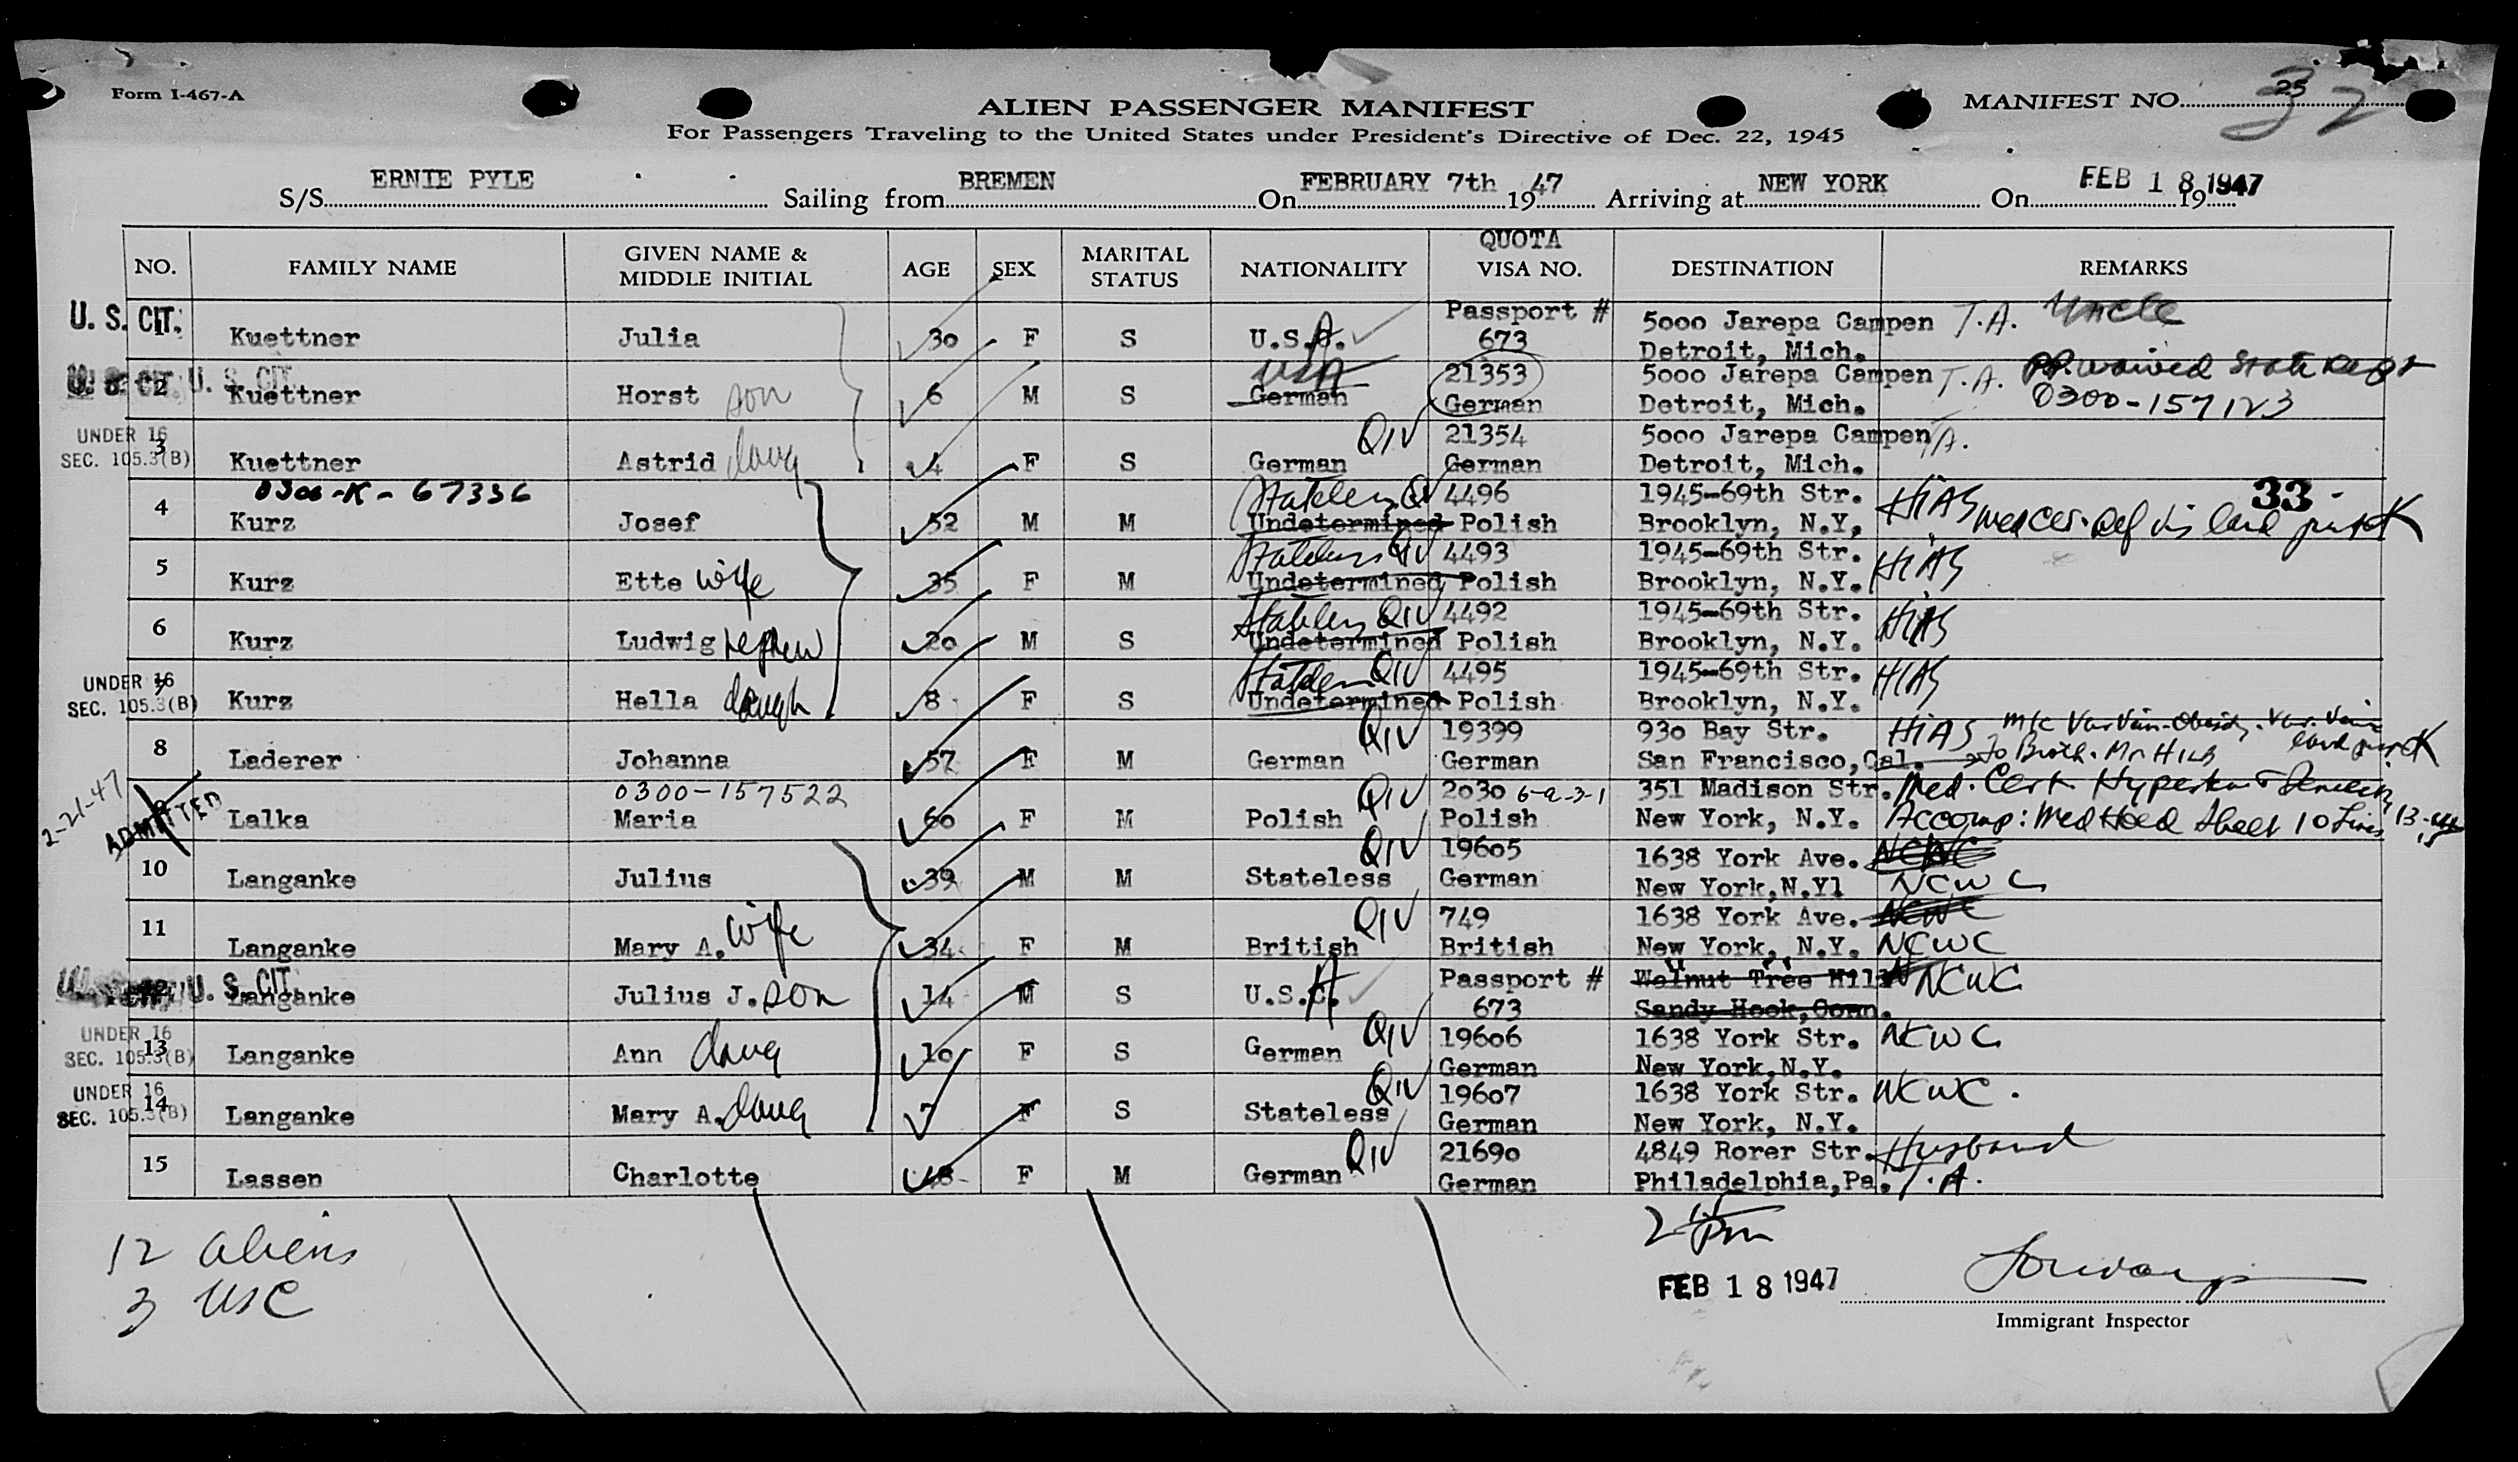 Form I-467-A
ALIEN PASSENGER MANIFEST
MANIFEST NO. 25 32
For Passengers Traveling to the United States under President's Directive of Dec. 22, 1945
S/S ERNIE PYLE Sailing from BREMEN On FEBRUARY 7th 1947 Arriving at NEW YORK On FEB 18 1947
NO. FAMILY NAME GIVEN NAME & MIDDLE INITIAL AGE SEX MARITAL STATUS NATIONALITY QUOTA VISA NO. DESTINATION REMARKS
U. S. CIT. 1 Kuettner Julia 30 F S U.S.A. Passport # 673 5000 Jarepa Campen Detroit, Mich. T.A. Uncle
U. S. CIT. 2 Kuettner Horst son 6 M S USA German 21353 German 5000 Jarepa Campen Detroit, Mich. T.A. PP. waived State Dept 0300-157123
UNDER 16 SEC. 105.3(B) 3 Kuettner Astrid daug 4 F S German QIV 21354 German 5000 Jarepa Campen Detroit, Mich. T.A.
4 0300-K-67336 Kurz Josef 52 M M Stateless QIV Undetermined 4496 Polish 1945-69th Str. Brooklyn, N.Y, HIAS 33
5 Kurz Ette wife 35 F M Stateless QIV Undetermined 4493 Polish 1945-69th Str. Brooklyn, N.Y. HIAS
6 Kurz Ludwig nephew 20 M S Stateless QIV Undetermined 4492 Polish 1945-69th Str. Brooklyn, N.Y. HIAS
UNDER 16 SEC. 105.3(B) 7 Kurz Hella daugh 8 F S Stateless QIV Undetermined 4495 Polish 1945-69th Str. Brooklyn, N.Y. HIAS
8 Laderer Johanna 57 F M German QIV 19399 German 930 Bay Str. San Francisco, Cal. HIAS
2-21-47 ADMITTED 9 Lalka 0300-157522 Maria 60 F M Polish QIV 2030 6-a-3-1 Polish 351 Madison Str. New York, N.Y. Med. Cert. Accomp: Med Hold Sheet 10 Line 13
10 Langanke Julius 39 M M Stateless QIV 19605 German 1638 York Ave. New York,N.Yl NCWC NCWC
11 Langanke Mary A. wife 34 F M British QIV 749 British 1638 York Ave. New York, N.Y. NCWC NCWC
U. S. CIT. 12 Langanke Julius J. son 14 M S U.S.A. Passport # 673 Walnut Tree Hill Sandy Hook, Conn. NCWC
UNDER 16 SEC. 105.3(B) 13 Langanke Ann daug 10 F S German QIV 19606 German 1638 York Str. New York,N.Y. NCWC
UNDER 16 SEC. 105.3(B) 14 Langanke Mary A. daug 7 F S Stateless QIV 19607 German 1638 York Str. New York, N.Y. NCWC.
15 Lassen Charlotte 48 F M German QIV 21690 German 4849 Rorer Str. Philadelphia,Pa. Husband T.A.
12 aliens
3 USC
FEB 18 1947
Immigrant Inspector